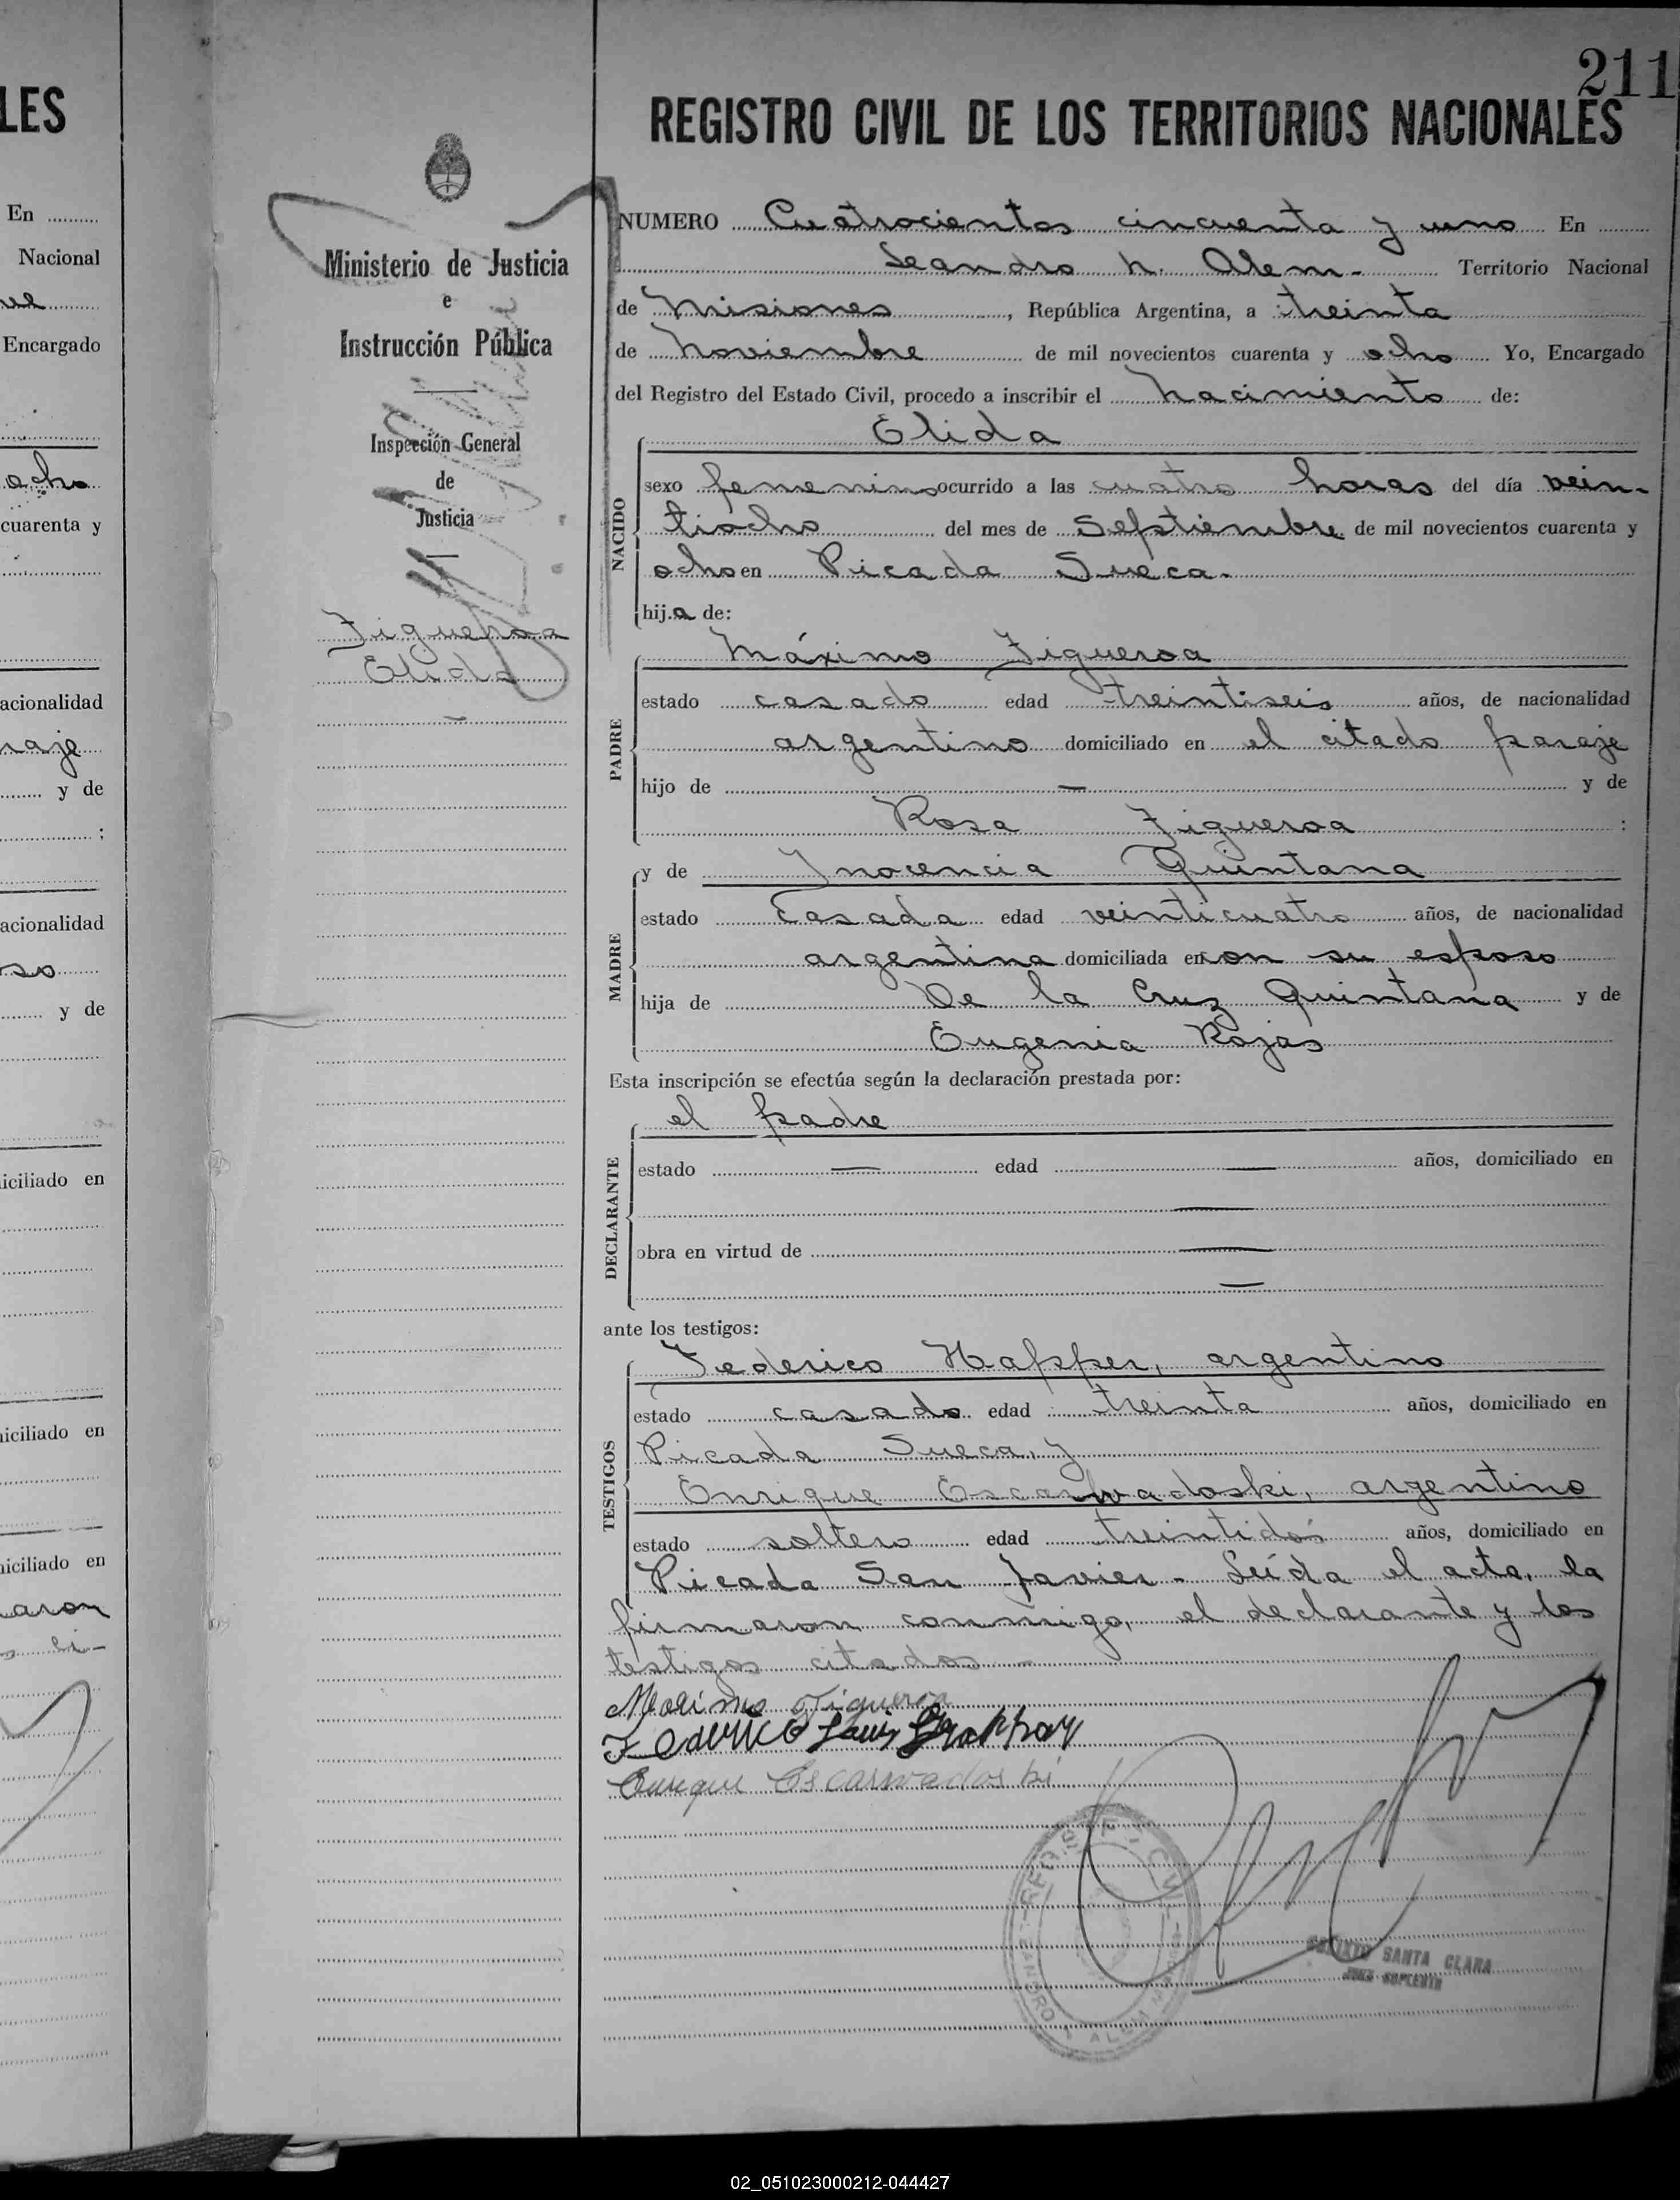 LES
En
Nacional
Encargado
ocho
cuarenta y
acionalidad
raje
y de
;
acionalidad
so
y de
iciliado en
iciliado en
iciliado en
aron
211
REGISTRO CIVIL DE LOS TERRITORIOS NACIONALES
Ministerio de Justicia
e
Instrucción Pública
Inspección General
de
Justicia
Figueroa
Elida
NUMERO Cuatrocientos cincuenta y uno En
Leandro N. Alem - Territorio Nacional
de Misiones, República Argentina, a treinta
de Noviembre de mil novecientos cuarenta y ocho Yo, Encargado
del Registro del Estado Civil, procedo a inscribir el Nacimiento de:
NACIDO
Elida
sexo femenino ocurrido a las cuatro horas del día vein-
tiocho del mes de Septiembre de mil novecientos cuarenta y
ocho en Picada Sueca.
hija de:
PADRE
Máximo Figueroa
estado casado edad treintiseis años, de nacionalidad
argentino domiciliado en el citado paraje
hijo de — y de
Rosa Figueroa :
MADRE
y de Inocencia Quintana
estado Casada edad veinticuatro años, de nacionalidad
argentina domiciliada en con su esposo
hija de De la Cruz Quintana y de
Eugenia Rojas
Esta inscripción se efectúa según la declaración prestada por:
DECLARANTE
el padre
estado — edad — años, domiciliado en
—
obra en virtud de —
—
ante los testigos:
TESTIGOS
Federico Happer, argentino
estado casado edad treinta años, domiciliado en
Picada Sueca, y
Enrique Escarwadoski, argentino
estado soltero edad treintidos años, domiciliado en
Picada San Javier - Leída el acta, la
firmaron conmigo, el declarante y los
testigos citados -
Maximo Figueroa
Federico Luis Happer
Enrique Escarwadoski
REGISTRO CIVIL
LEANDRO N. ALEM
CALIXTO SANTA CLARA
JUEZ SUPLENTE
02_051023000212-044427